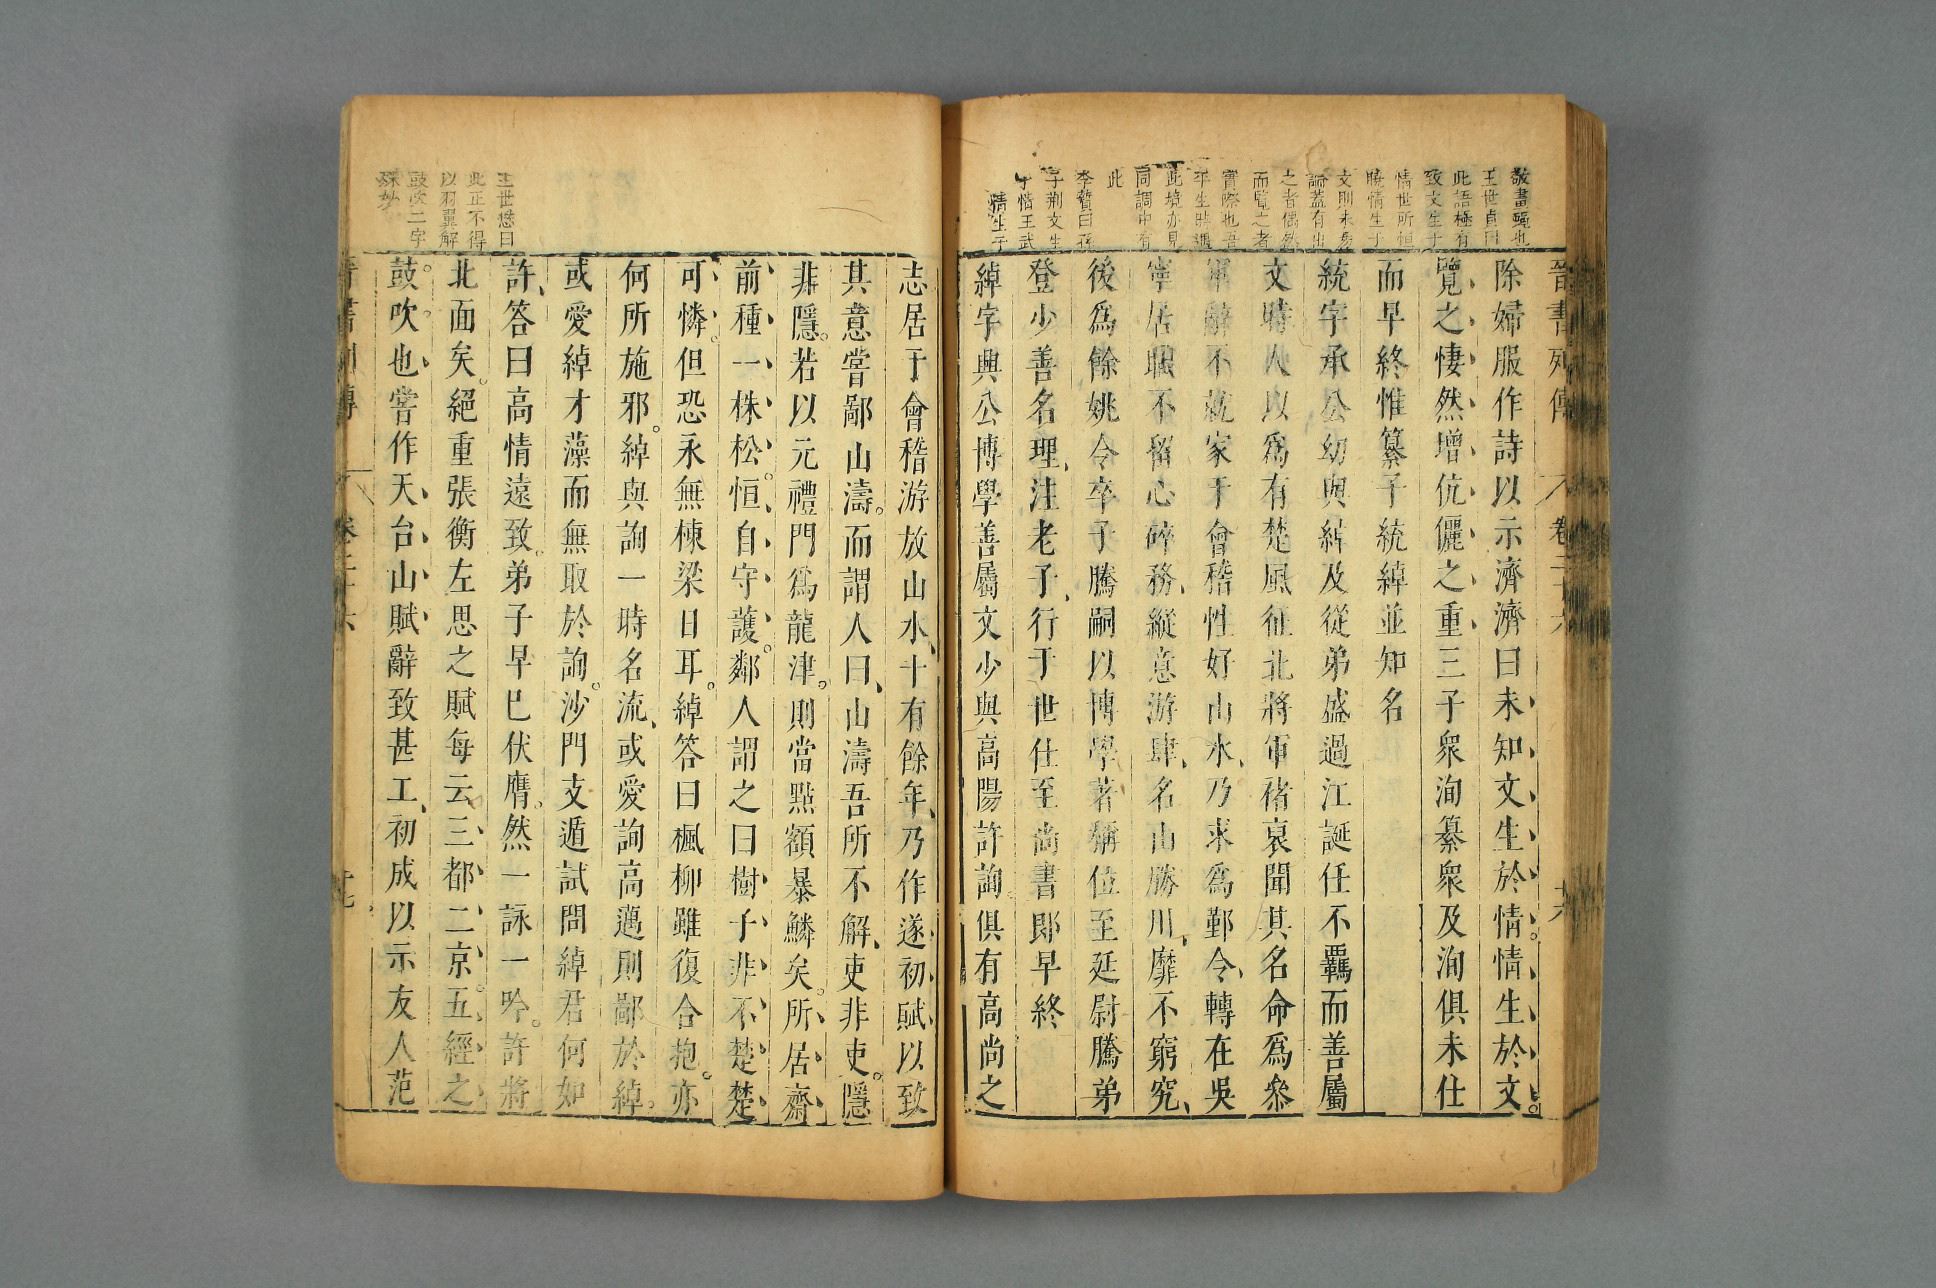 敬畫蠅也
王世貞曰
此語極有
致文生于
情世所恒
曉情生于
文則未易
論蓋有出
之者偶然
而覽之者
實際也吾
平生時遇
此境亦見
同調中有
此
李贄曰孫
子荆文生
于情王武
情生于
晉書列傳 卷三十六 十六
除婦服作詩以示濟濟曰未知文生於情情生於文
覽之悽然增伉儷之重三子衆洵纂衆及洵俱未仕
而早終惟纂子統綽並知名
統字承公幼與綽及從弟盛過江誕任不羈而善屬
文時人以爲有楚風征北將軍褚裒聞其名命爲參
軍辭不就家于會稽性好山水乃求爲鄞令轉在吳
寧居職不留心碎務縱意游肆名山勝川靡不窮究
後爲餘姚令卒子騰嗣以博學著稱位至廷尉騰弟
登少善名理注老子行于世仕至尚書郎早終
綽字興公博學善屬文少與高陽許詢俱有高尚之
志居于會稽游放山水十有餘年乃作遂初賦以致
其意嘗鄙山濤而謂人曰山濤吾所不解吏非吏隱
非隱若以元禮門爲龍津則當點額暴鱗矣所居齋
前種一株松恒自守護鄰人謂之曰樹子非不楚楚
可憐但恐永無棟梁日耳綽答曰楓柳雖復合抱亦
何所施邪綽與詢一時名流或愛詢高邁則鄙於綽
或愛綽才藻而無取於詢沙門支遁試問綽君何如
許答曰高情遠致弟子早已伏膺然一詠一吟許將
北面矣絕重張衡左思之賦每云三都二京五經之
鼓吹也嘗作天台山賦辭致甚工初成以示友人范
王世懋曰
此正不得
以羽翼解
鼓吹二字
殊妙
晉書列傳 卷三十六 十七